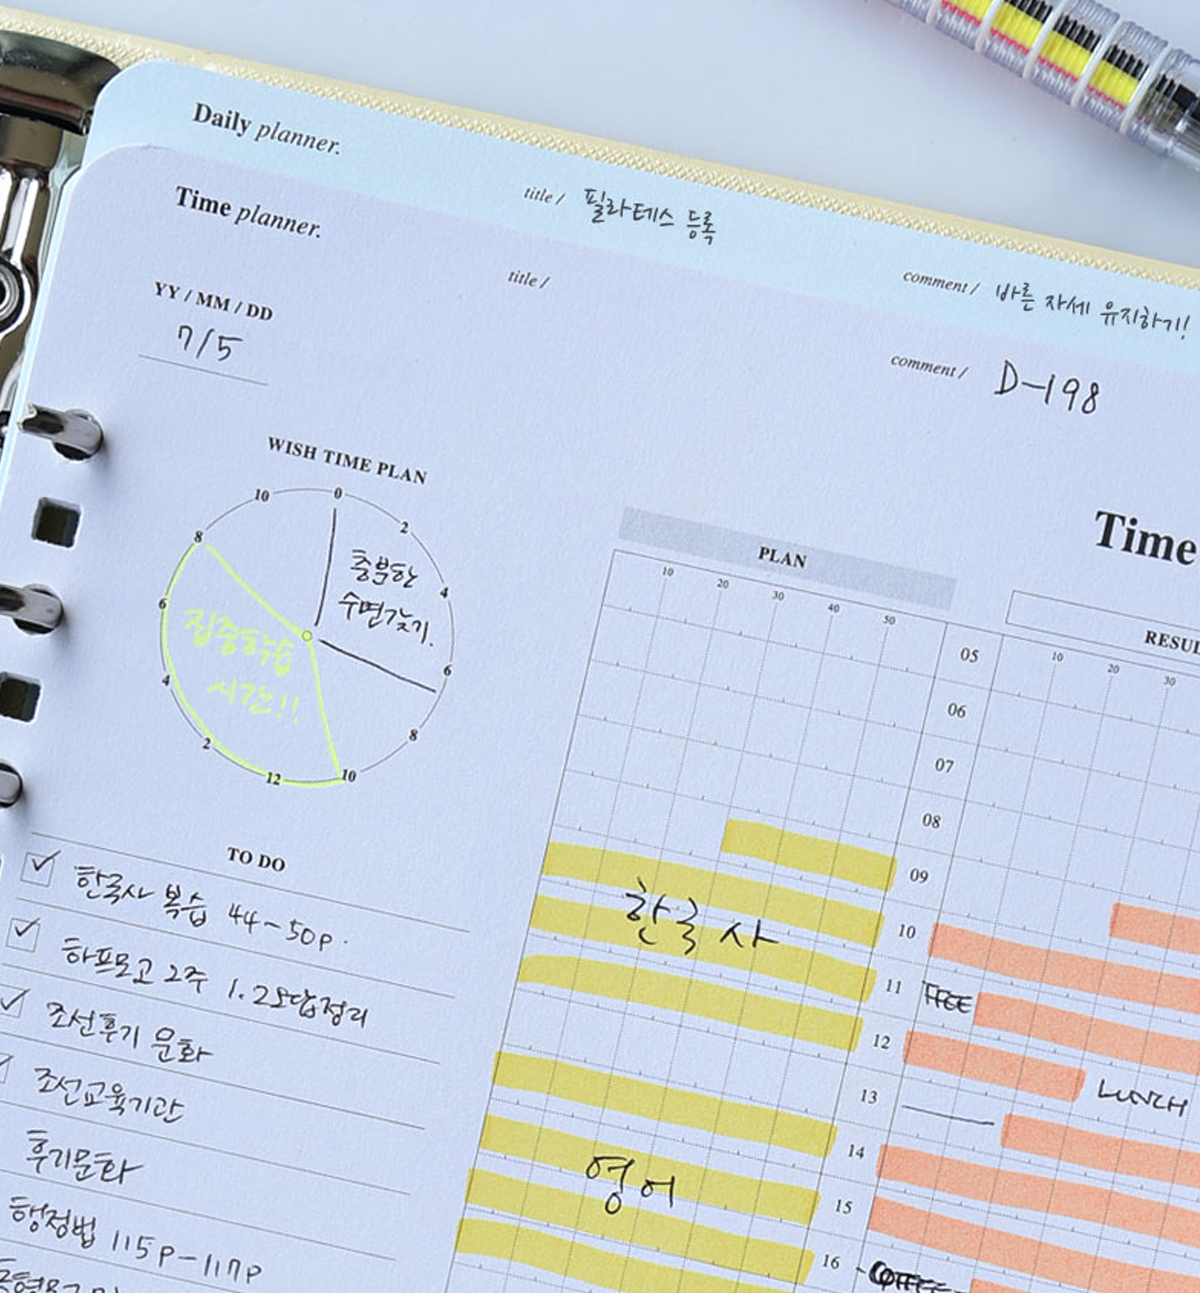 Daily planner.
title / 필라테스 등록
comment / 바른 자세 유지하기!
Time planner.
title /
comment / D-198
YY / MM / DD
7/5
WISH TIME PLAN
0
2
4
6
8
10
12
2
4
6
8
10
충분한
수면갖기.
집중학습
시간!!
TO DO
한국사 복습 44-50p.
하프모고 2주 1.2오답정리
조선후기 문화
조선교육기관
후기문화
행정법 115p-117p
Time
PLAN
10 20 30 40 50
RESUL
10 20 30
05
06
07
08
09
10
11
12
13
14
15
16
한국사
영어
LUNCH
COFFEE